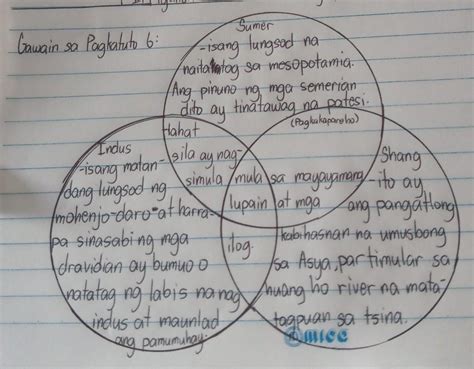 Gawain sa Pagkatuto 6:
Sumer
-isang lungsod na
naitatatag sa mesopotamia.
Ang pinuno ng mga semerian
dito ay tinatawag na patesi.
(Pagkakapareho)
lahat
sila ay nag-
simula mula sa mayayamang
lupain at mga
ilog.
Indus
-isang matan-
dang lungsod ng
mohenjo-daro at harra-
pa sinasabi ng mga
dravidian ay bumuo o
natatag ng labis na nag
indus at maunlad
ang pamumuhay.
Shang
-ito ay
ang pangatlong
kabihasnan na umusbong
sa Asya, partimular sa
huang ho river na mata-
tagpuan sa tsina.